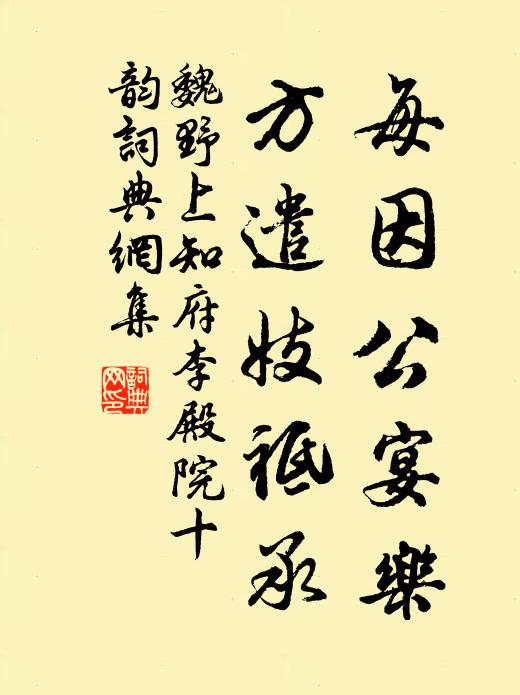 每因公宴樂
方遣妓祗承
魏野上知府李殿院十
韵詞典網集
詞典網印